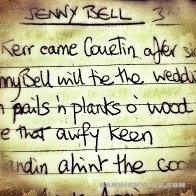 JENNY BELL 3
Kerr came Courtin after su
nyBell will be the weddi
n pails 'n planks o' wood
e that awfy keen
andin ahint the coo